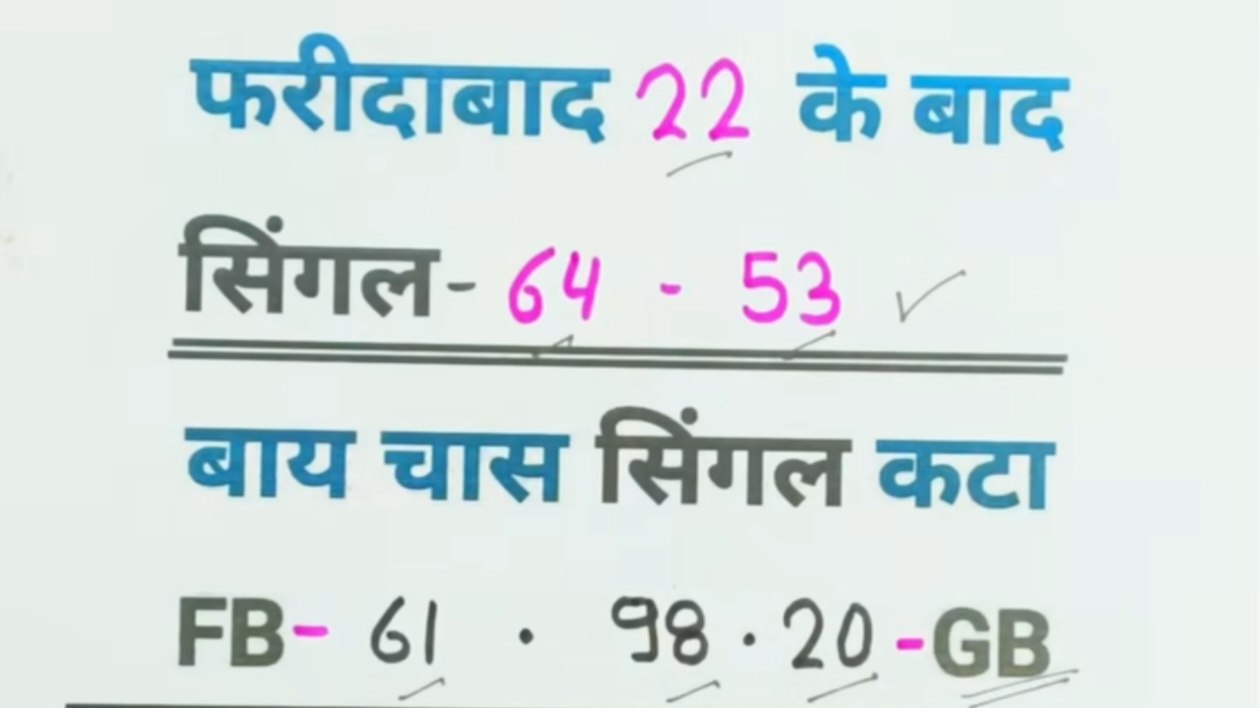 फरीदाबाद 22 के बाद
सिंगल- 64 - 53
बाय चास सिंगल कटा
FB- 61 . 98 . 20 -GB